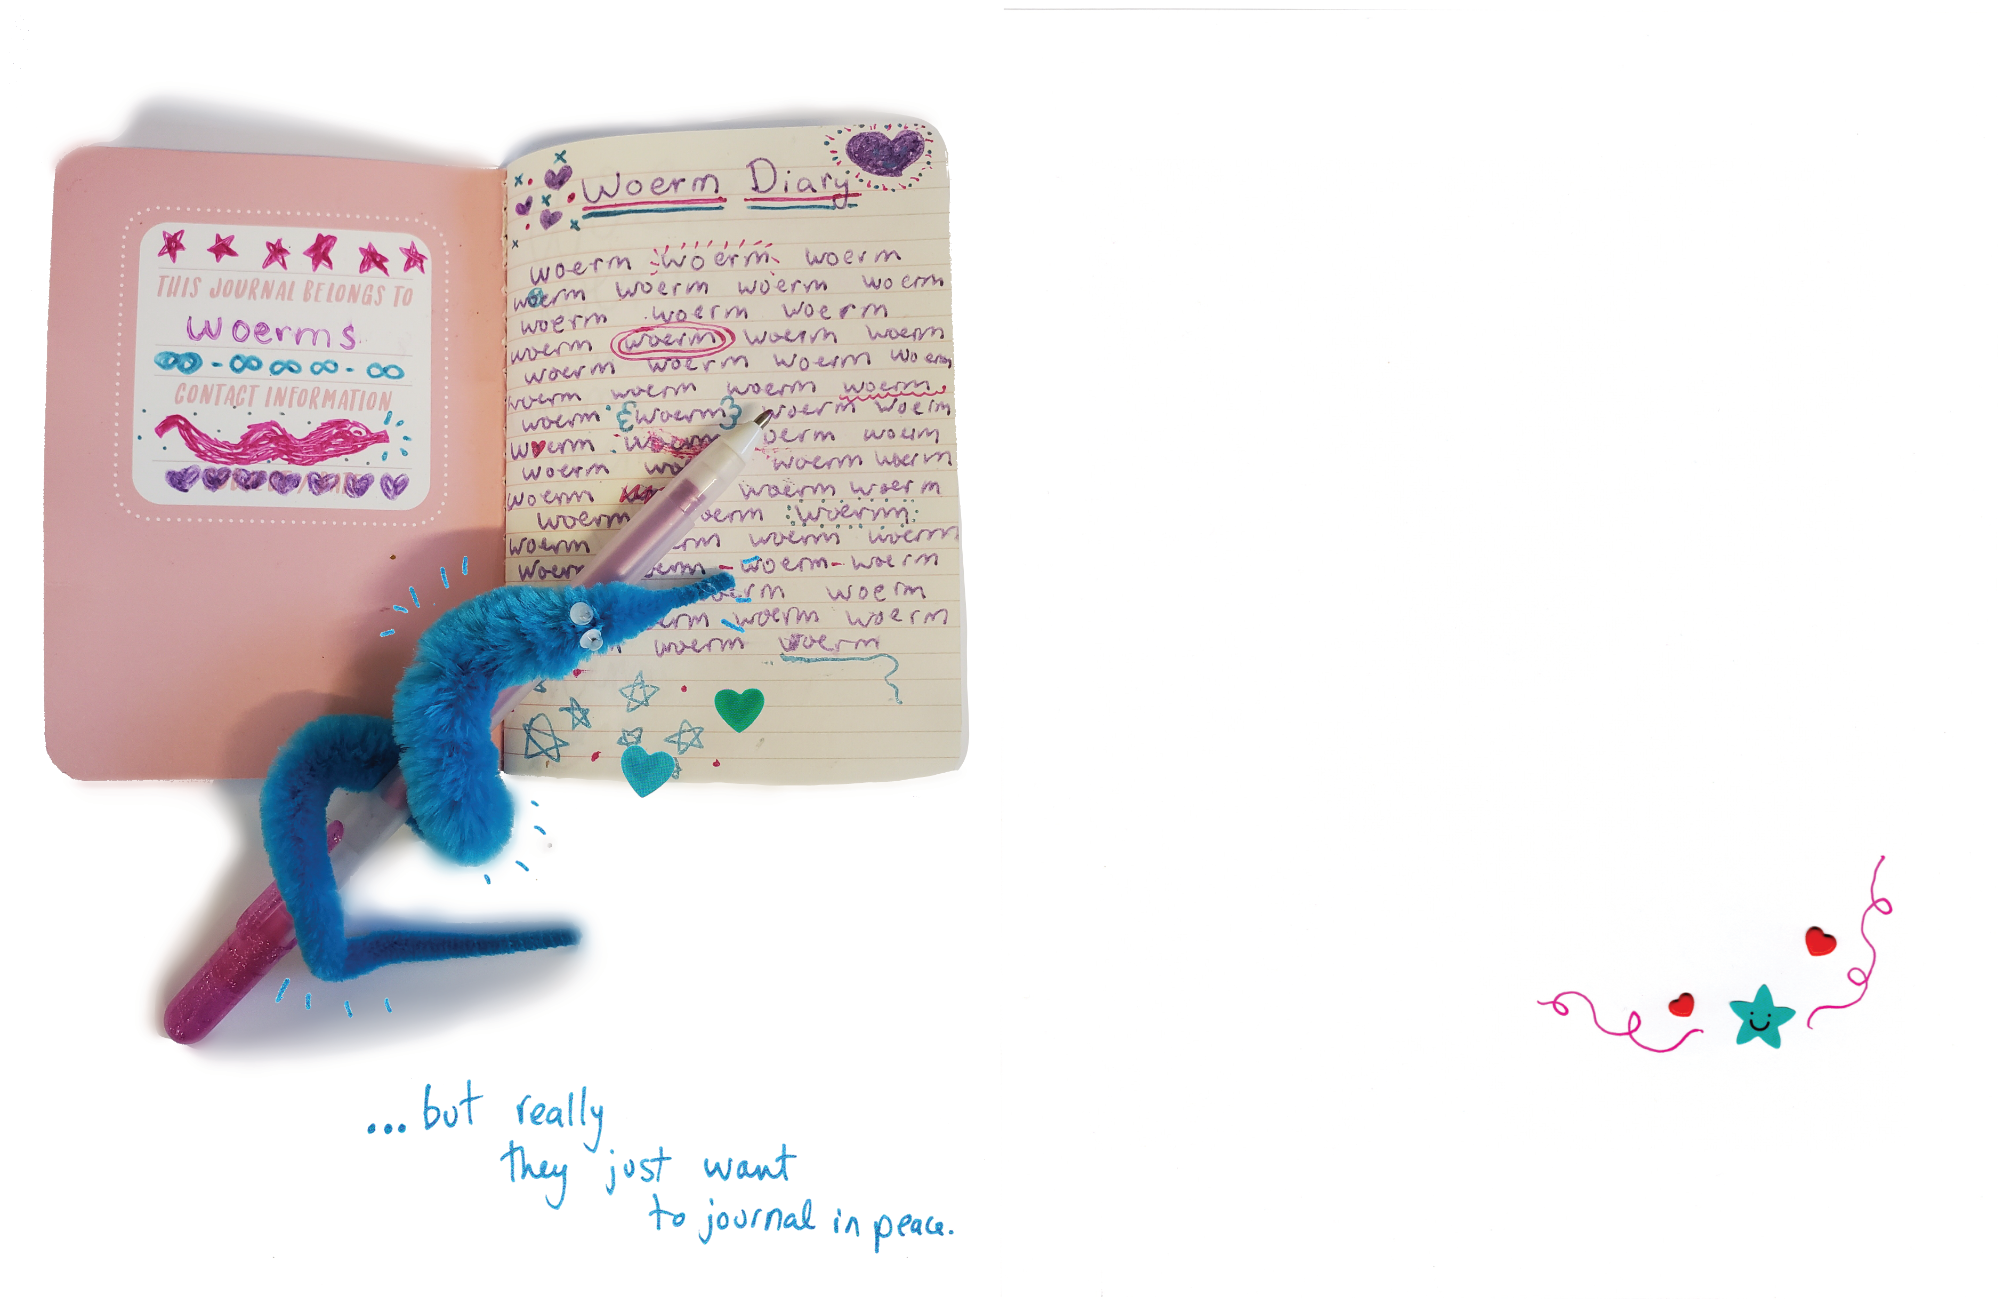 THIS JOURNAL BELONGS TO
woerms
CONTACT INFORMATION
Woerm Diary
woerm woerm woerm
woerm woerm woerm woerm
woerm woerm woerm
woerm woerm woerm woerm
woerm woerm woerm woerm
woerm woerm woerm woerm
woerm woerm woerm woerm
woerm woerm woerm
woerm woerm woerm
woerm woerm woerm
woerm woerm
woerm woerm woerm
woerm woerm woerm
woerm
woerm woerm
woerm woerm
...but really
they just want
to journal in peace.